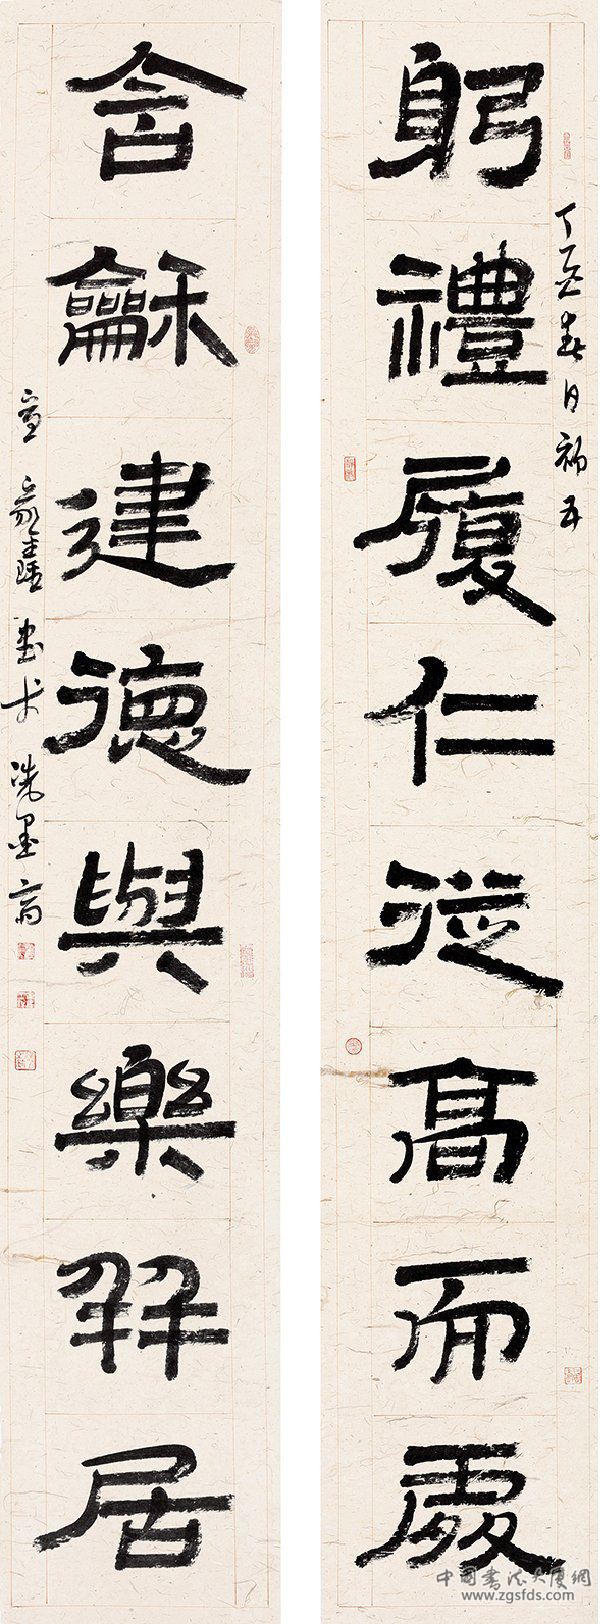 丁亥春日初五
躬禮履仁從高而處
含龢建德與樂并居
書于洗墨齋
中國書法大廈網
www.zgsfds.com